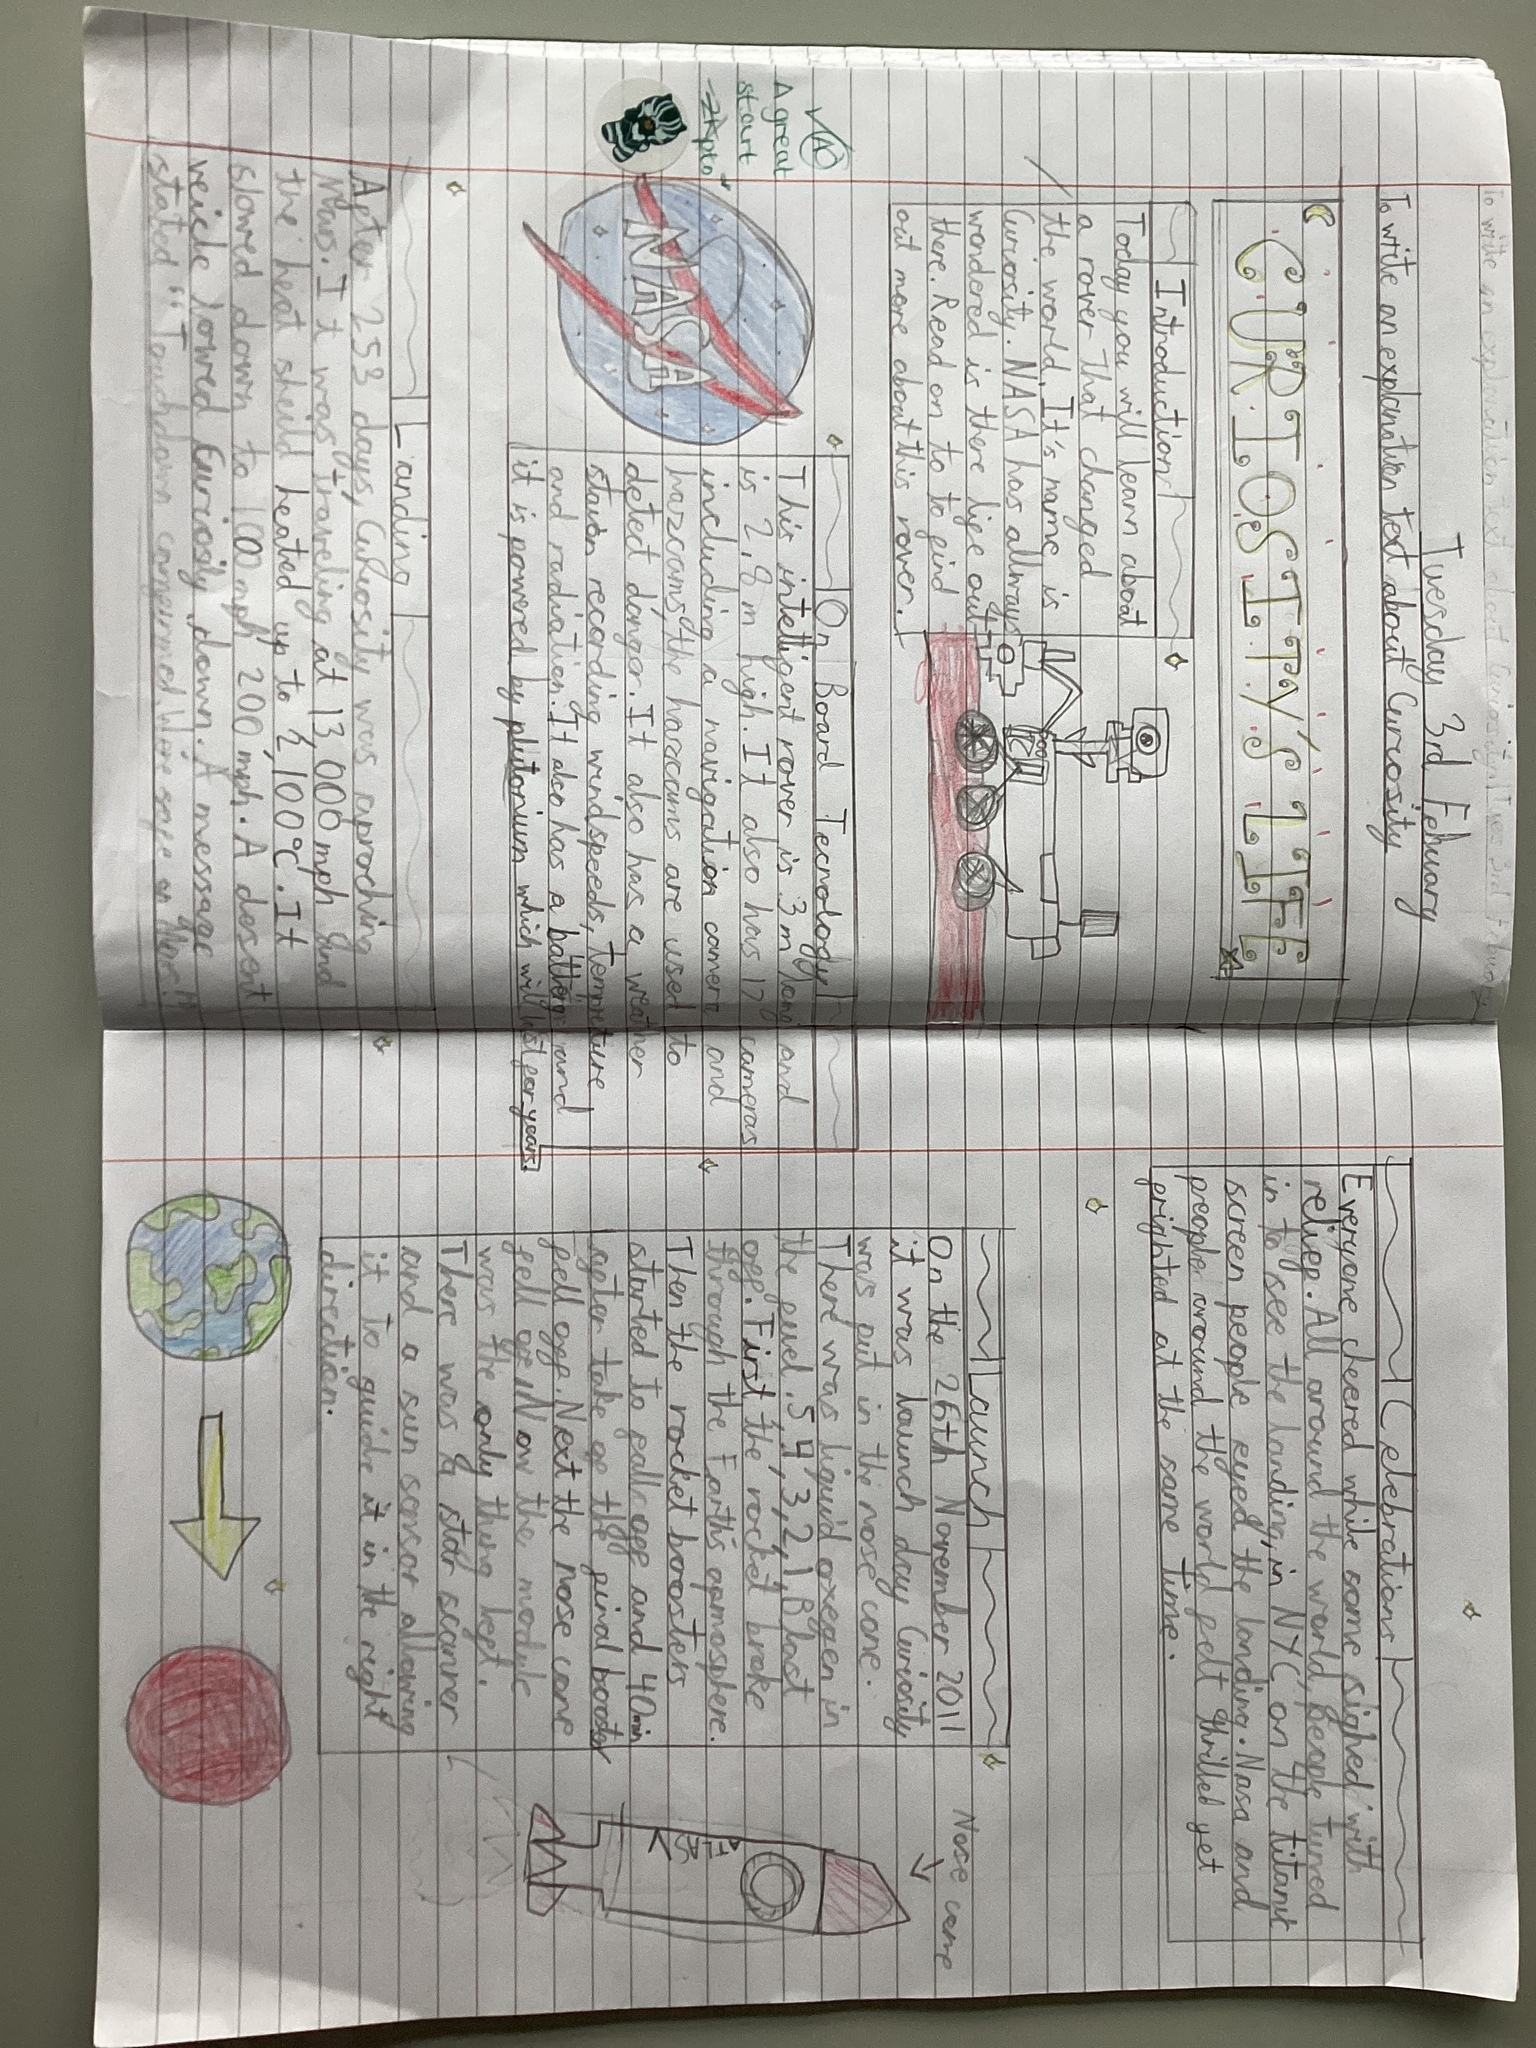 Tuesday 3rd Febuary
To write an explanation text about Curiosity
CURIOSITY'S LIFE
Introduction
Today you will learn about
a rover that changed
the world. It's name is
Curiosity. NASA has always
wondered is there life out
there. Read on to to find
out more about this rover.
A great
start
NASA
On Board Tecnology
This intelligent rover is 3m long and
is 2,8 m high. It also has 17 cameras
including a navigation camera and
hazcams, the hazcams are used to
detect danger. It also has a weather
staion recording windspeeds, tempreture
and radiation. It also has a battery and
it is powered by plutorium which will last for years.
Landing
After 253 days, Curiosity was aproching
Mars. It was traveling at 13,000 mph and
the heat sheild heated up to 2,100°C. It
slowed down to 100 mph 200 mph. A desent
veicle lowered Curiosity down. A message
stated "Touchdown comfirmed. We're safe on Mars."
Celebrations
Everyone cheered while some sighed with
relief. All around the world, people tuned
in to see the landing, in NYC, on the titanic
screen people eyed the landing. Nasa and
people around the world felt thrilled yet
frighted at the same time.
Launch
On the 26th November 2011
it was launch day Curiosity
was put in the nose cone.
There was liquid oxegen in
the fuel. 5,4,3,2,1, Blast
off. First the rocket broke
through the Earth's apmosphere.
Then the rocket boosters
started to fall off and 40min
after take off the final booster
fell off. Next the nose cone
fell off. Now the module
was the only thing kept.
There was a star scanner
and a sun sensor allowing
it to guide it in the right
direction.
Nose cone
NASA